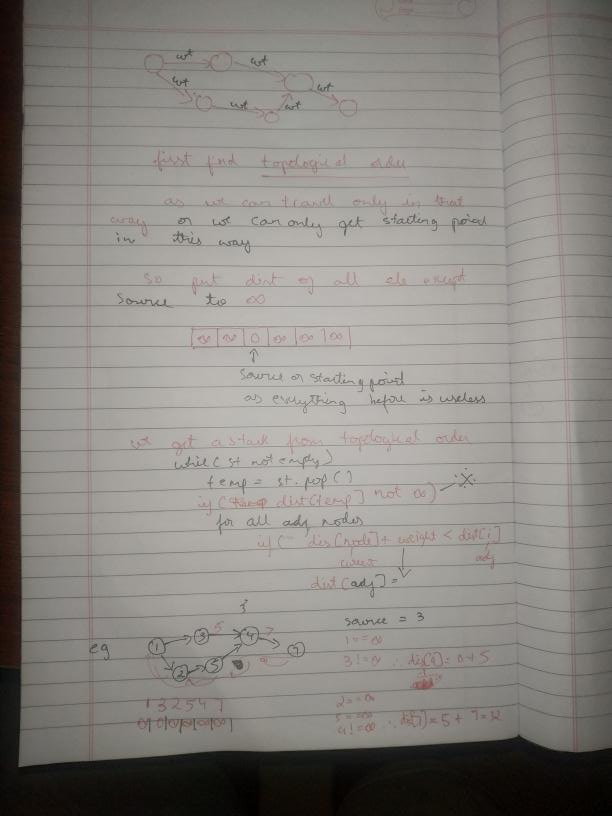 wt wt
wt wt
wt wt
first find topological order
as we can travel only in that
way or we can only get starting point
in this way
so put dist of all ele except
source to ∞
∞ ∞ 0 ∞ ∞ ∞
↑
source or starting point
as everything before is useless
we get a stack from topological order
while( st not empty)
temp = st.pop()
if ( dist[temp] not ∞)
for all adj nodes
if( dis[node] + weight < dist[i]
adj
dist[adj] =
}
source = 3
eg 1 3 5 4 7 7
2 5
1 == ∞
3 != ∞ ∴ dis[4] = 0 + 5
1 3 2 5 4 7
2 == ∞
5 == ∞
4 != ∞ ∴ dis[7] = 5 + 7 = 12